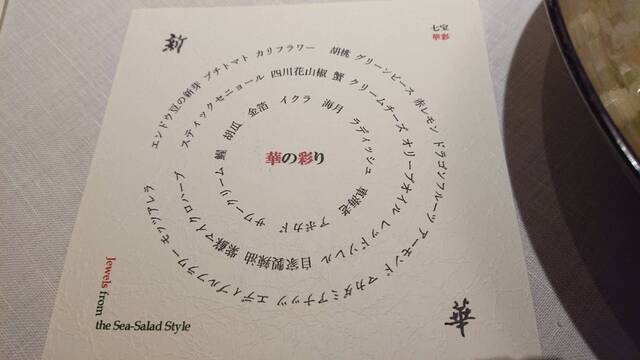 新
七宝
華彩
エンドウ豆の新芽 プチトマト カリフラワー 胡桃 グリーンピース 赤レモン ドラゴンフルーツ アーモンド マカダミアナッツ エディブルフラワー モッツアレラ
スティックセニョール 四川花山椒 蟹 クリームチーズ オリーブオイル レッドソレル 自家製辣油 紫蘇 マイクロハーブ
鰹 胡瓜 金箔 イクラ 海月 ラディッシュ 車海老 アボカド サワークリーム
華の彩り
Jewels from
the Sea-Salad Style
華